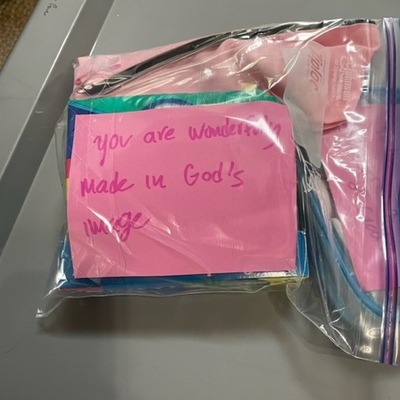 you are wonderfully
made in God's
image